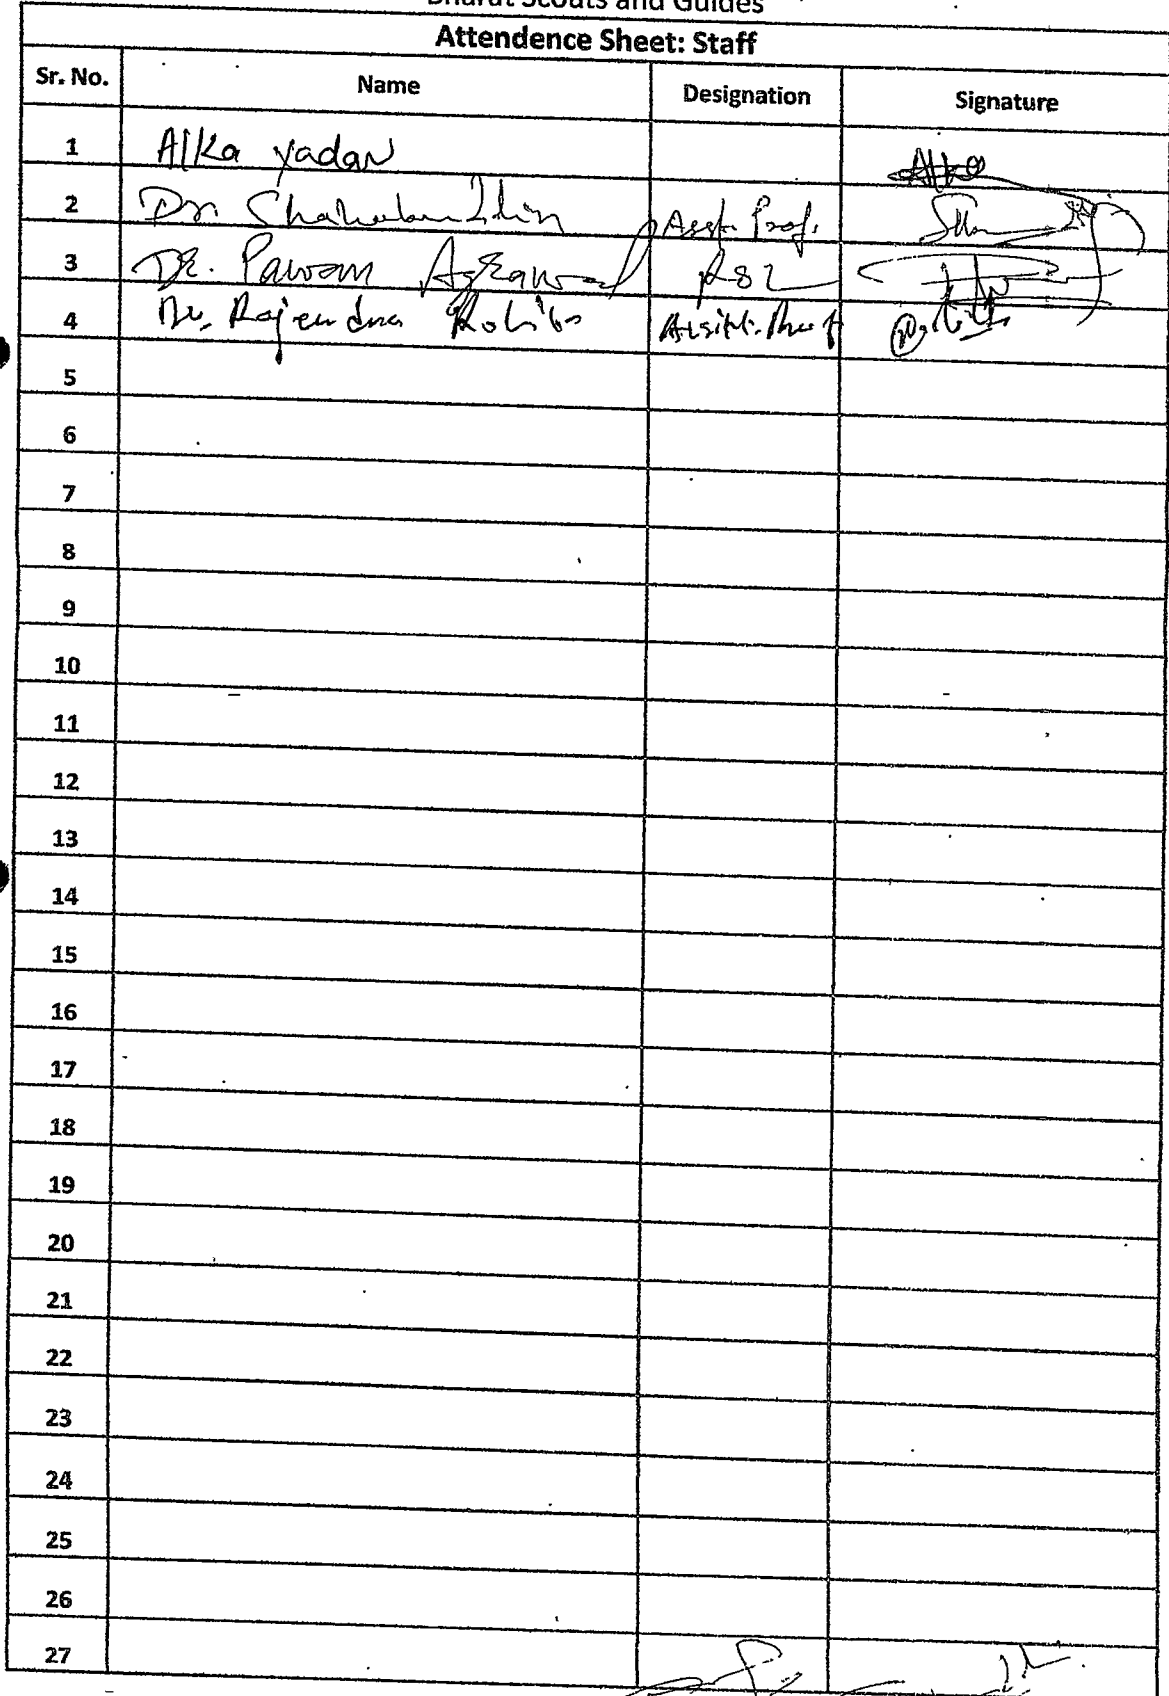 Bharat Scouts and Guides
Attendence Sheet: Staff
Sr. No. Name Designation Signature
1 Alka Yadav Alka
2 Dr. Asst. Prof.
3 Dr. Pawan Agrawal
4 Dr. Rajendra
5
6
7
8
9
10
11
12
13
14
15
16
17
18
19
20
21
22
23
24
25
26
27